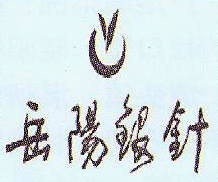 岳陽銀針